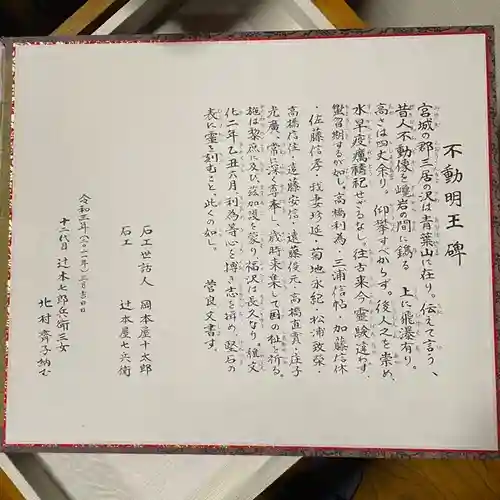 不動明王碑
宮城の郡三居の沢は青葉山に在り。伝えて言う、
昔人不動像を巉岩の間に鐫る 上に飛瀑有り。
高さは四丈余り。仰攀すべからず。後人之を崇め、
水旱疫癘祷祀せざるなし。往古来今霊験違わず、
響習期するが如し。高橋利為・三浦信帖・加藤信休
・佐藤信孝・我妻珍延・菊地泳紀・松浦致榮・
高橋信任・遠藤安信・遠藤俊元・高橋直賣・庄子
光廣、常に深く尊奉し、歳時来集して国の祉を祈る。
施は黎庶に及ひ茲加護を蒙り福沢は長久なり。維文
化二年乙丑六月、利為等心を摶き志を併め、堅石の
表に霊を刻むこと、此くの如し。 菅良文書す。
石工世話人 岡本屋十太郎
石工 辻本屋七兵衛
令和三年(二〇二一年)三月吉日
十二代目辻本七郎兵衛三女
北村齊子納む